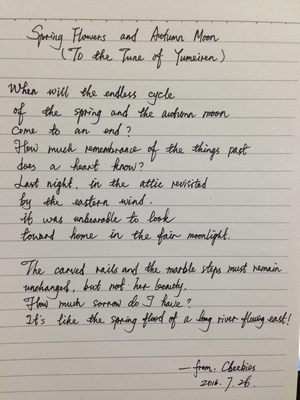 Spring Flowers and Autumn Moon
(To the Tune of Yumeiren)
When will the endless cycle
of the spring and the autumn moon
come to an end?
How much remembrance of the things past
does a heart know?
Last night, in the attic revisited
by the eastern wind.
it was unbearable to look
toward home in the fair moonlight.
The carved rails and the marble steps must remain
unchanged, but not her beauty.
How much sorrow do I have?
It's like the spring flood of a long river flowing east!
— from: Cbeebies
2016. 7. 26.